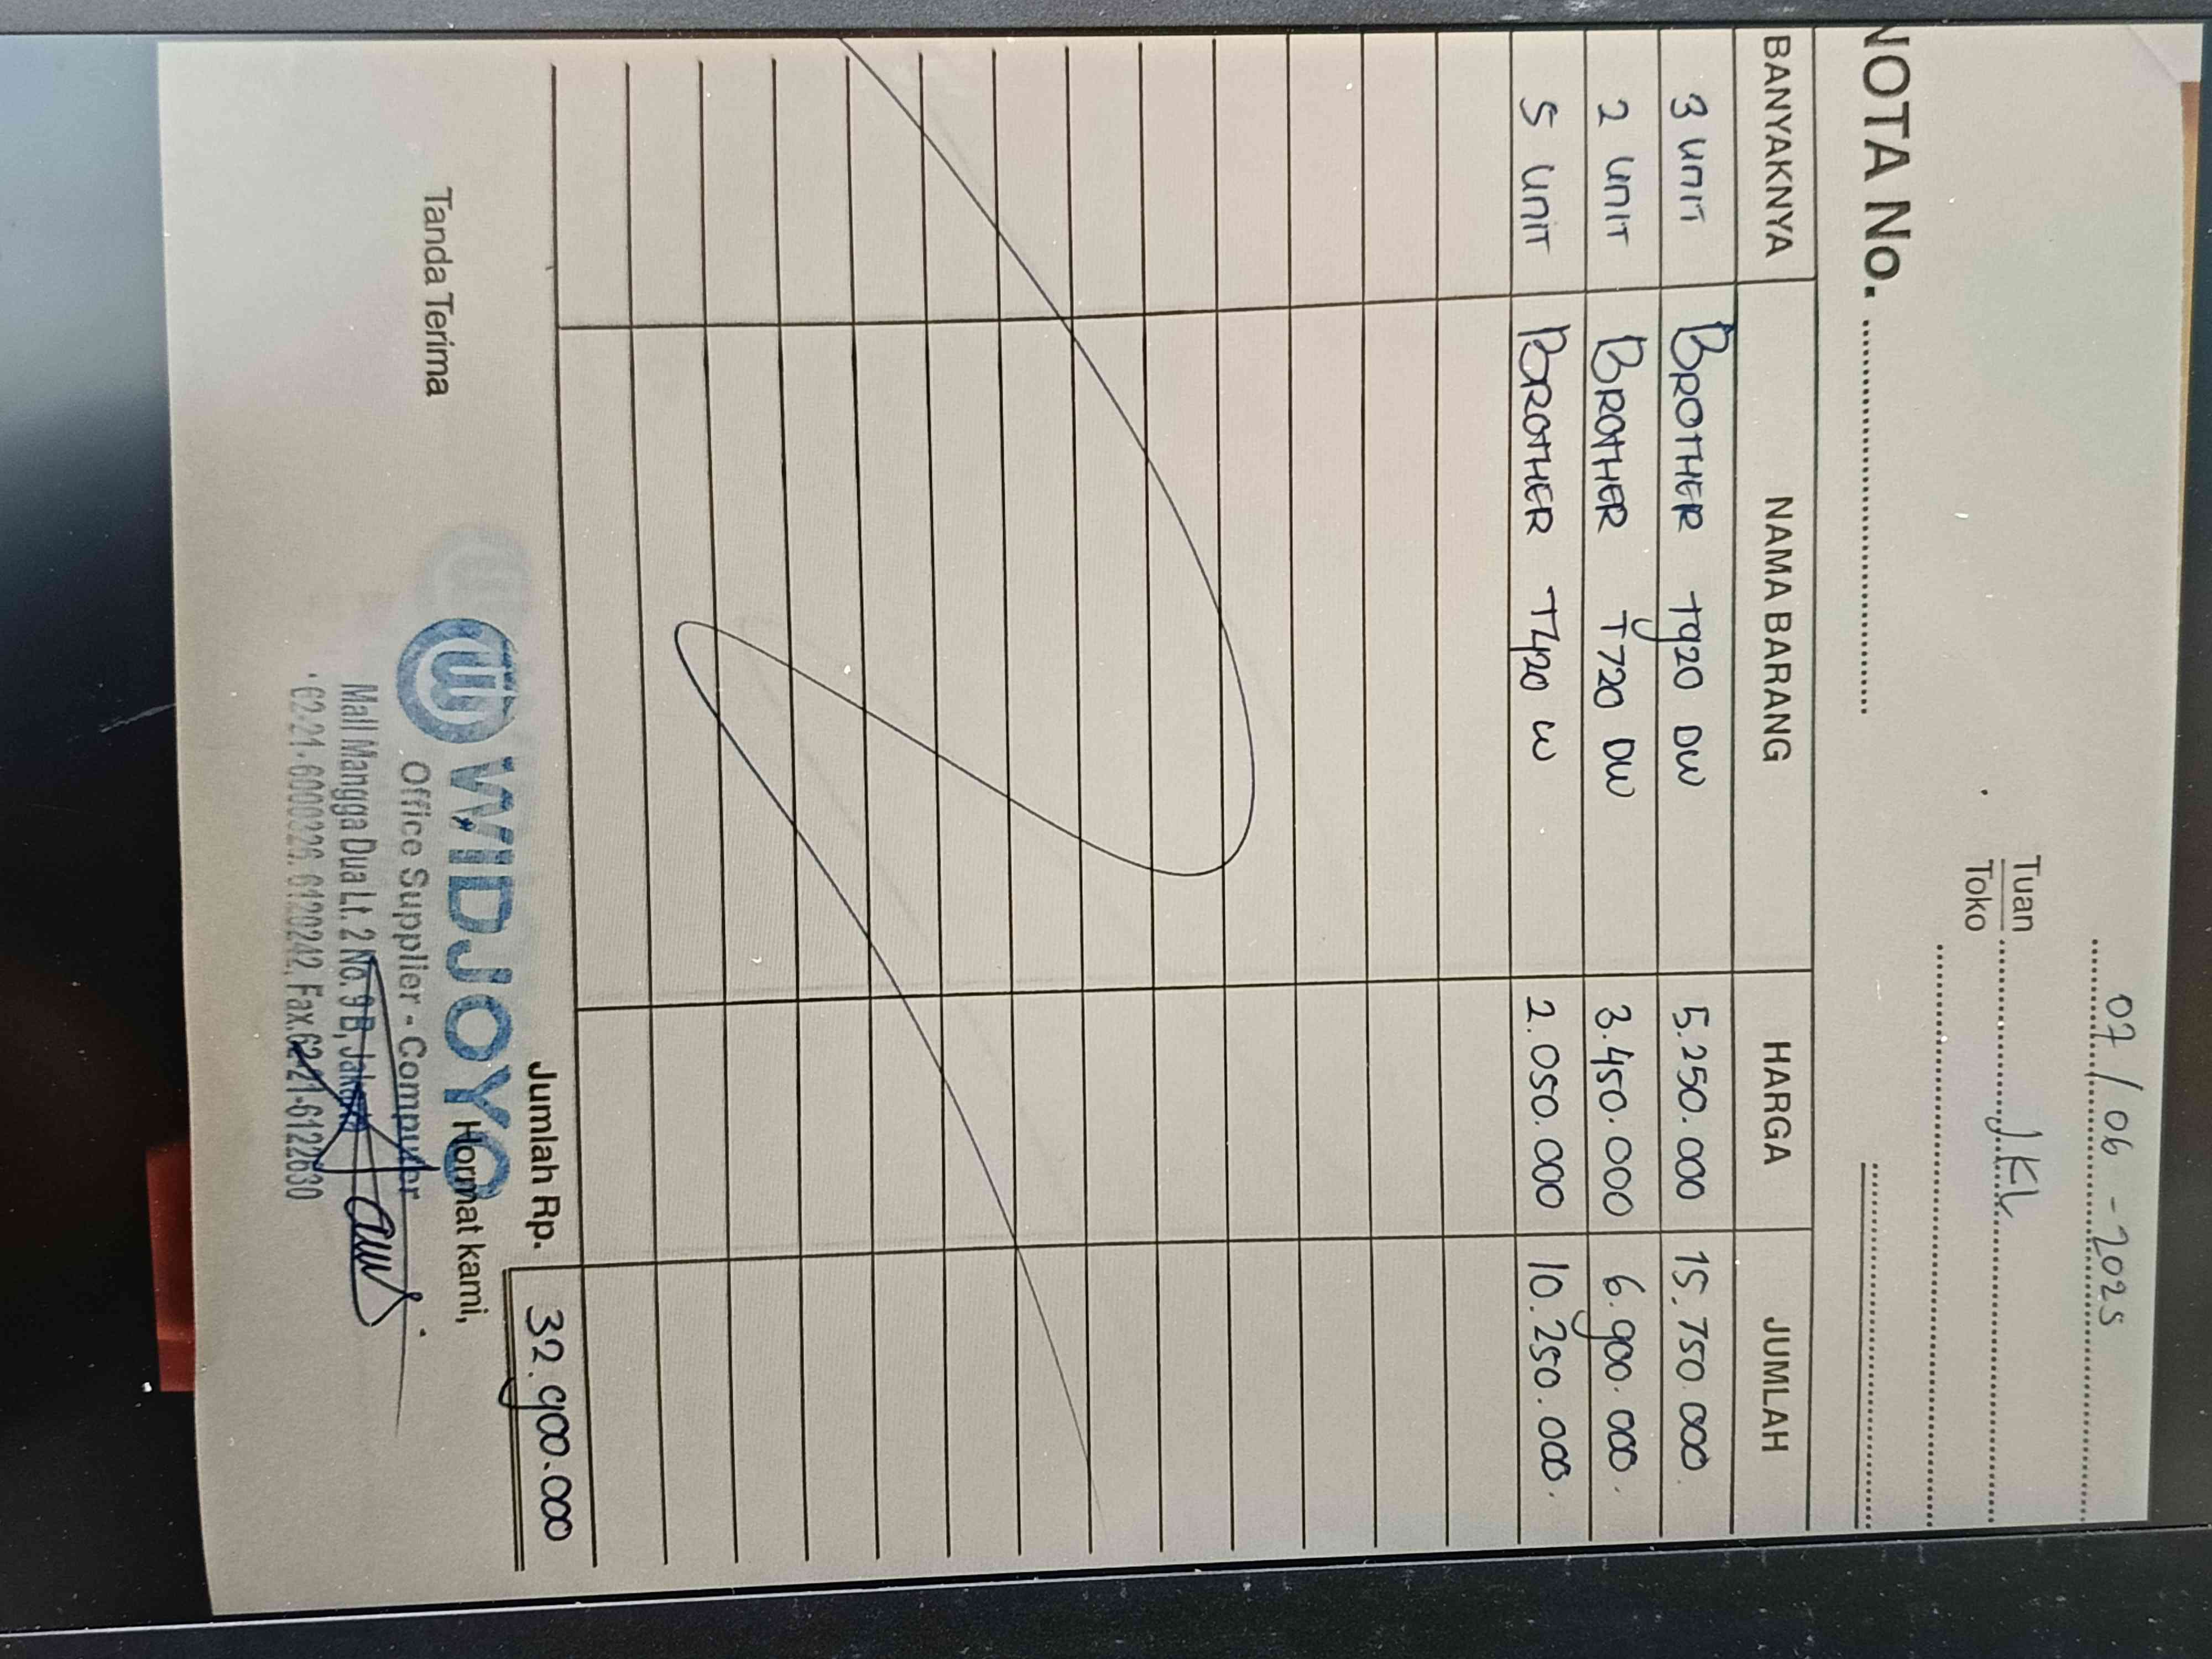 07/06-2025
Tuan JKL
Toko
NOTA No.
BANYAKNYA NAMA BARANG HARGA JUMLAH
3 unit BROTHER T920 DW 5.250.000 15.750.000
2 unit BROTHER T720 DW 3.450.000 6.900.000.
5 unit BROTHER T420 W 2.050.000 10.250.000.
Jumlah Rp. 32.900.000
Tanda Terima Hormat kami,
WIDJOYO
Office Supplier - Computer
Mall Mangga Dua Lt. 2 No. 9 B, Jakarta
62-21-6000226, 6120242, Fax.62-21-6122630